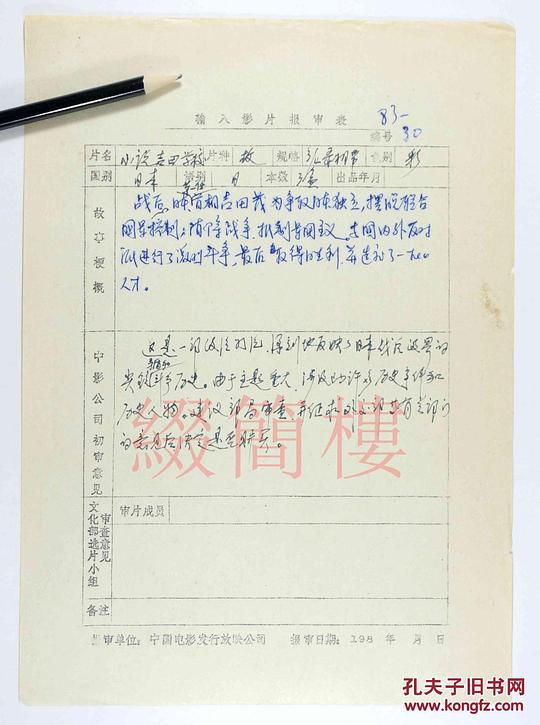 输入影片报审表
83-
编号 30
片名 小说吉田学校 片种 故 规格 色别 彩
国别 日本 语别 日 本数 出品年月
故事梗概
战后，日本首相吉田茂为争取日本独立，摆脱联合
国军控制，
派进行了激烈斗争，最后取得胜利，并造就了一批
人才。
中影公司初审意见
这是一部政治影片，深刻地反映了日本战后政界的
历史。由于主题重大，涉及到许多历史事件和
历史人物。建议部局审查，并征求
的意见后决定是否购买。
文化部选片小组审查意见
审片成员
备注
报审单位：中国电影发行放映公司 报审日期：198 年 月 日
綴簡樓
孔夫子旧书网
www.kongfz.com